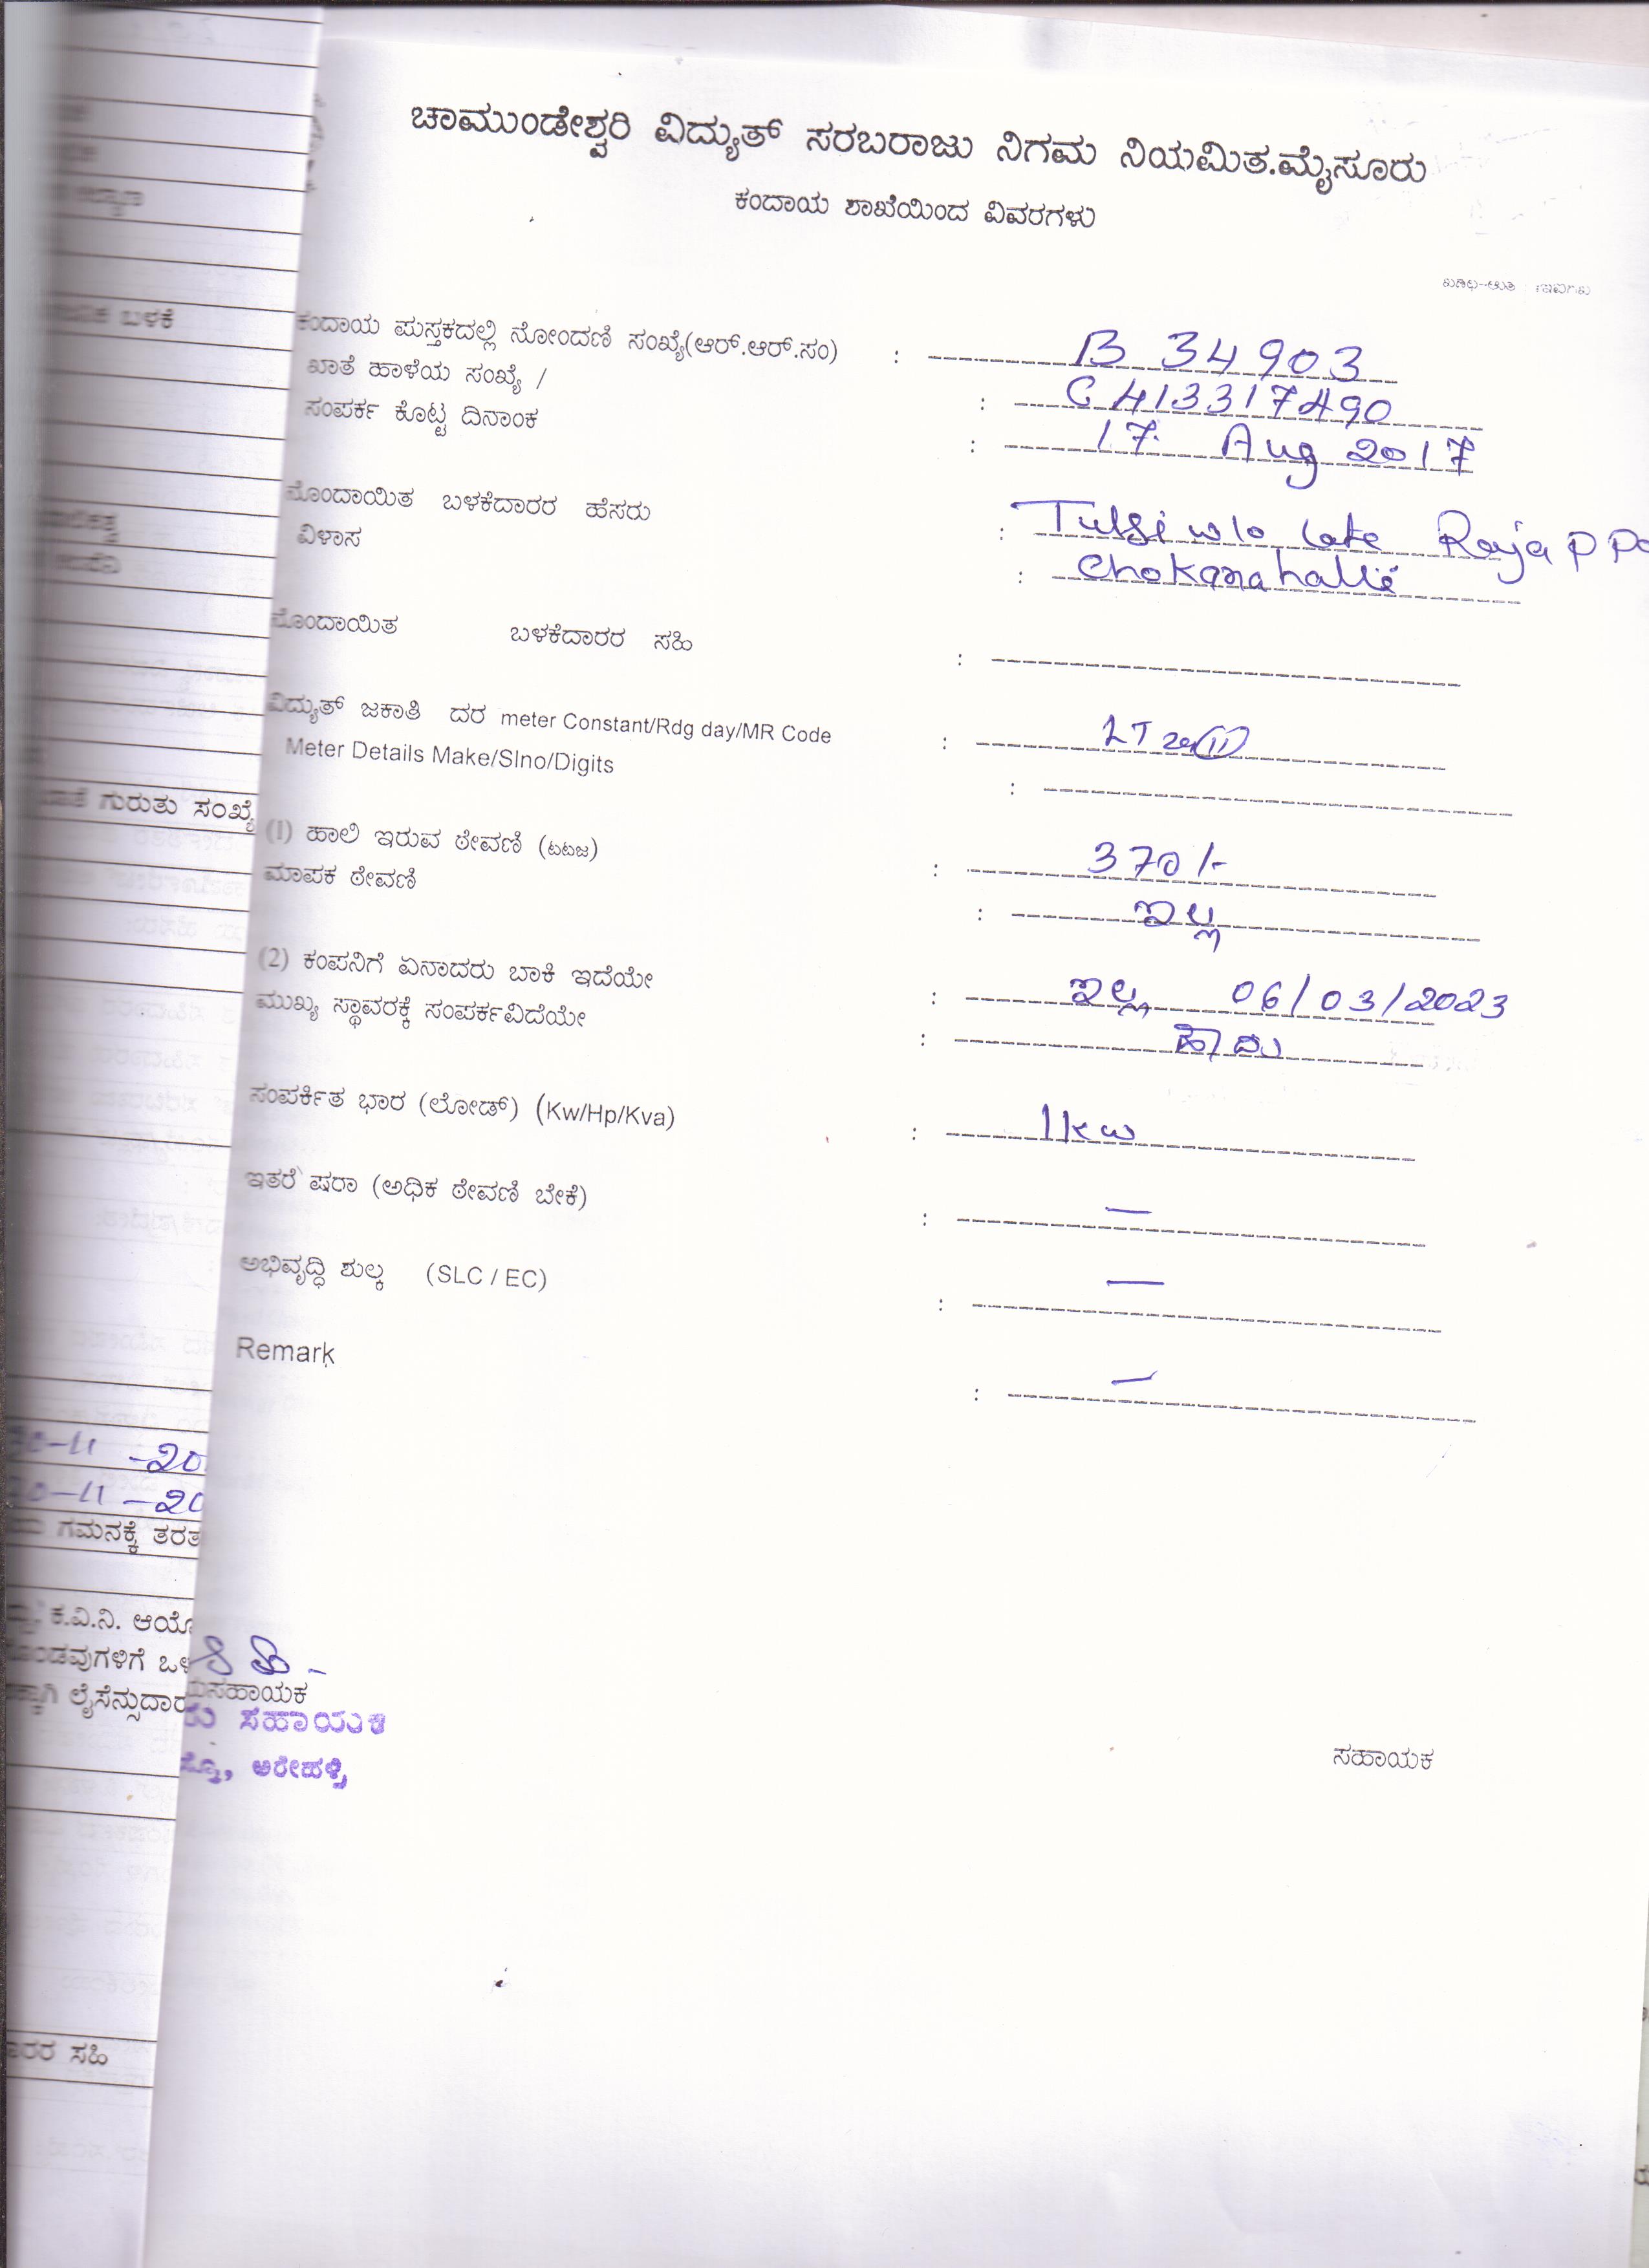 ಚಾಮುಂಡೇಶ್ವರಿ ವಿದ್ಯುತ್ ಸರಬರಾಜು ನಿಗಮ ನಿಯಮಿತ.ಮೈಸೂರು
ಕಂದಾಯ ಶಾಖೆಯಿಂದ ವಿವರಗಳು
ಕಂದಾಯ ಪುಸ್ತಕದಲ್ಲಿ ನೋಂದಣಿ ಸಂಖ್ಯೆ(ಆರ್.ಆರ್.ಸಂ) : B 34903
ಖಾತೆ ಹಾಳೆಯ ಸಂಖ್ಯೆ / : C 413317490
ಸಂಪರ್ಕ ಕೊಟ್ಟ ದಿನಾಂಕ : 17 Aug 2017
ನೊಂದಾಯಿತ ಬಳಕೆದಾರರ ಹೆಸರು : Tulsi w/o late
ವಿಳಾಸ : Chokanahalli
ನೊಂದಾಯಿತ ಬಳಕೆದಾರರ ಸಹಿ :
ವಿದ್ಯುತ್ ಜಕಾತಿ ದರ meter Constant/Rdg day/MR Code : LT
Meter Details Make/Slno/Digits :
(1) ಹಾಲಿ ಇರುವ ಠೇವಣಿ (ಟಟಜ) : 370/-
ಮಾಪಕ ಠೇವಣಿ : ಇಲ್ಲ
(2) ಕಂಪನಿಗೆ ಏನಾದರು ಬಾಕಿ ಇದೆಯೇ : ಇಲ್ಲ 06/03/2023
ಮುಖ್ಯ ಸ್ಥಾವರಕ್ಕೆ ಸಂಪರ್ಕವಿದೆಯೇ : ಹೌದು
ಸಂಪರ್ಕಿತ ಭಾರ (ಲೋಡ್) (Kw/Hp/Kva) : 1kw
ಇತರೆ ಷರಾ (ಅಧಿಕ ಠೇವಣಿ ಬೇಕೆ) : —
ಅಭಿವೃದ್ಧಿ ಶುಲ್ಕ (SLC / EC) : —
Remark : —
ಸಹಾಯಕ
ಬಳಕೆ
ಗುರುತು ಸಂಖ್ಯೆ
-11 -20
-11 -20
ಗಮನಕ್ಕೆ ತರತ
ಕ.ವಿ.ನಿ. ಆಯೋ
ಲೈಸೆನ್ಸುದಾರ
ಸಹಾಯಕ
ಸಹಾಯಕ
ಅರೇಹಳ್ಳಿ
ಸಹಿ